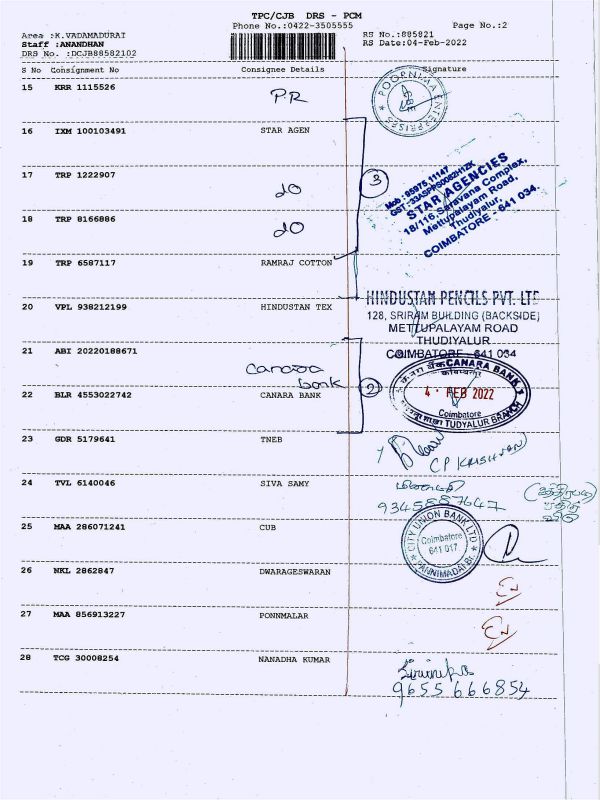 TPC/CJB DRS - PCM
Phone No.:0422-3505555
Page No.:2
Area :K.VADAMADURAI
RS No.:885821
Staff :ANANDHAN
RS Date:04-Feb-2022
DRS No. :DCJB88582102
S No Consignment No Consignee Details Signature
15 KRR 1115526
PR
POORNIMA ENTERPRISES
16 IXM 100103491 STAR AGEN
17 TRP 1222907
do
3
Mob : 95975 11147
STAR AGENCIES
18/116, Saravana Complex,
Mettupalayam Road,
Thudiyalur,
COIMBATORE - 641 034.
18 TRP 8166886
do
19 TRP 6587117 RAMRAJ COTTON
HINDUSTAN PENCILS PVT. LTD
20 VPL 938212199 HINDUSTAN TEX
128, SRIRAM BUILDING (BACKSIDE)
METTUPALAYAM ROAD
THUDIYALUR
COIMBATORE - 641 034
21 ABI 20220188671
Canara
bank
2
CANARA BANK
4 - FEB 2022
Coimbatore
TUDYALUR BRANCH
22 BLR 4553022742 CANARA BANK
23 GDR 5179641 TNEB
CP KRISHNAN
24 TVL 6140046 SIVA SAMY
9345887647
25 MAA 286071241 CUB
CITY UNION BANK LTD
Coimbatore
641 017
PANNIMADAI Br.
26 NKL 2862847 DWARAGESWARAN
27 MAA 856913227 PONNMALAR
28 TCG 30008254 NANADHA KUMAR
9655 666854